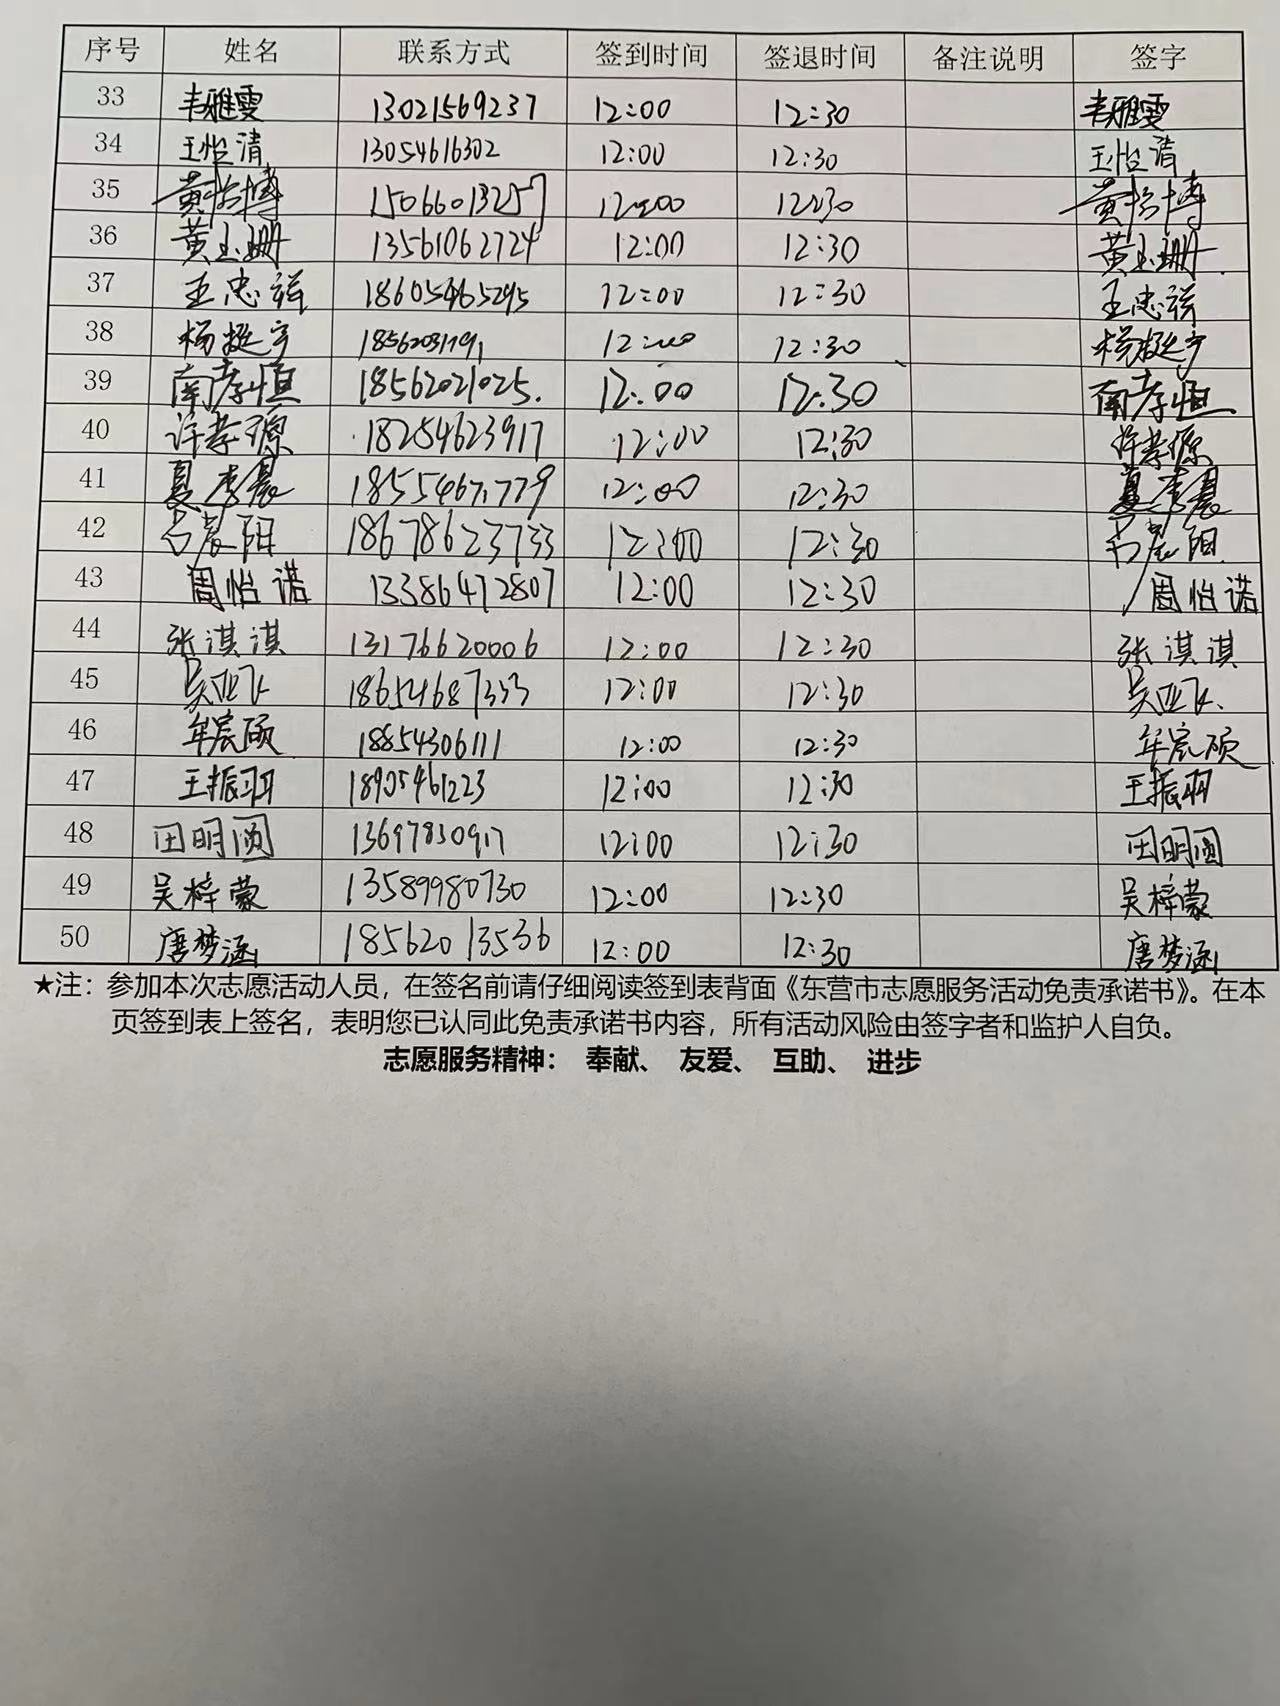 序号 姓名 联系方式 签到时间 签退时间 备注说明 签字
33 韦雅雯 13021569237 12:00 12:30 韦雅雯
34 王怡清 13054616302 12:00 12:30 王怡清
35 15066013257 12:00 12:30
36 黄玉珊 13561062724 12:00 12:30 黄玉珊
37 王忠祥 18605465295 12:00 12:30 王忠祥
38 杨挺宇 12:00 12:30 杨挺宇
39 南孝恒 18562021025. 12:00 12:30 南孝恒
40 许孝源 18254623917 12:00 12:30 许孝源
41 夏李晨 18554671779 12:00 12:30 夏李晨
42 18678623733 12:00 12:30
43 周怡诺 13386472807 12:00 12:30 周怡诺
44 张淇淇 13176620006 12:00 12:30 张淇淇
45 吴亚飞 18654687333 12:00 12:30 吴亚飞
46 牟宸硕 18854306111 12:00 12:30 牟宸硕
47 王振羽 18905461223 12:00 12:30 王振羽
48 田明圆 13697830917 12:00 12:30 田明圆
49 吴梓蒙 13589980730 12:00 12:30 吴梓蒙
50 唐梦涵 18562013536 12:00 12:30 唐梦涵
★注：参加本次志愿活动人员，在签名前请仔细阅读签到表背面《东营市志愿服务活动免责承诺书》。在本
页签到表上签名，表明您已认同此免责承诺书内容，所有活动风险由签字者和监护人自负。
志愿服务精神： 奉献、 友爱、 互助、 进步